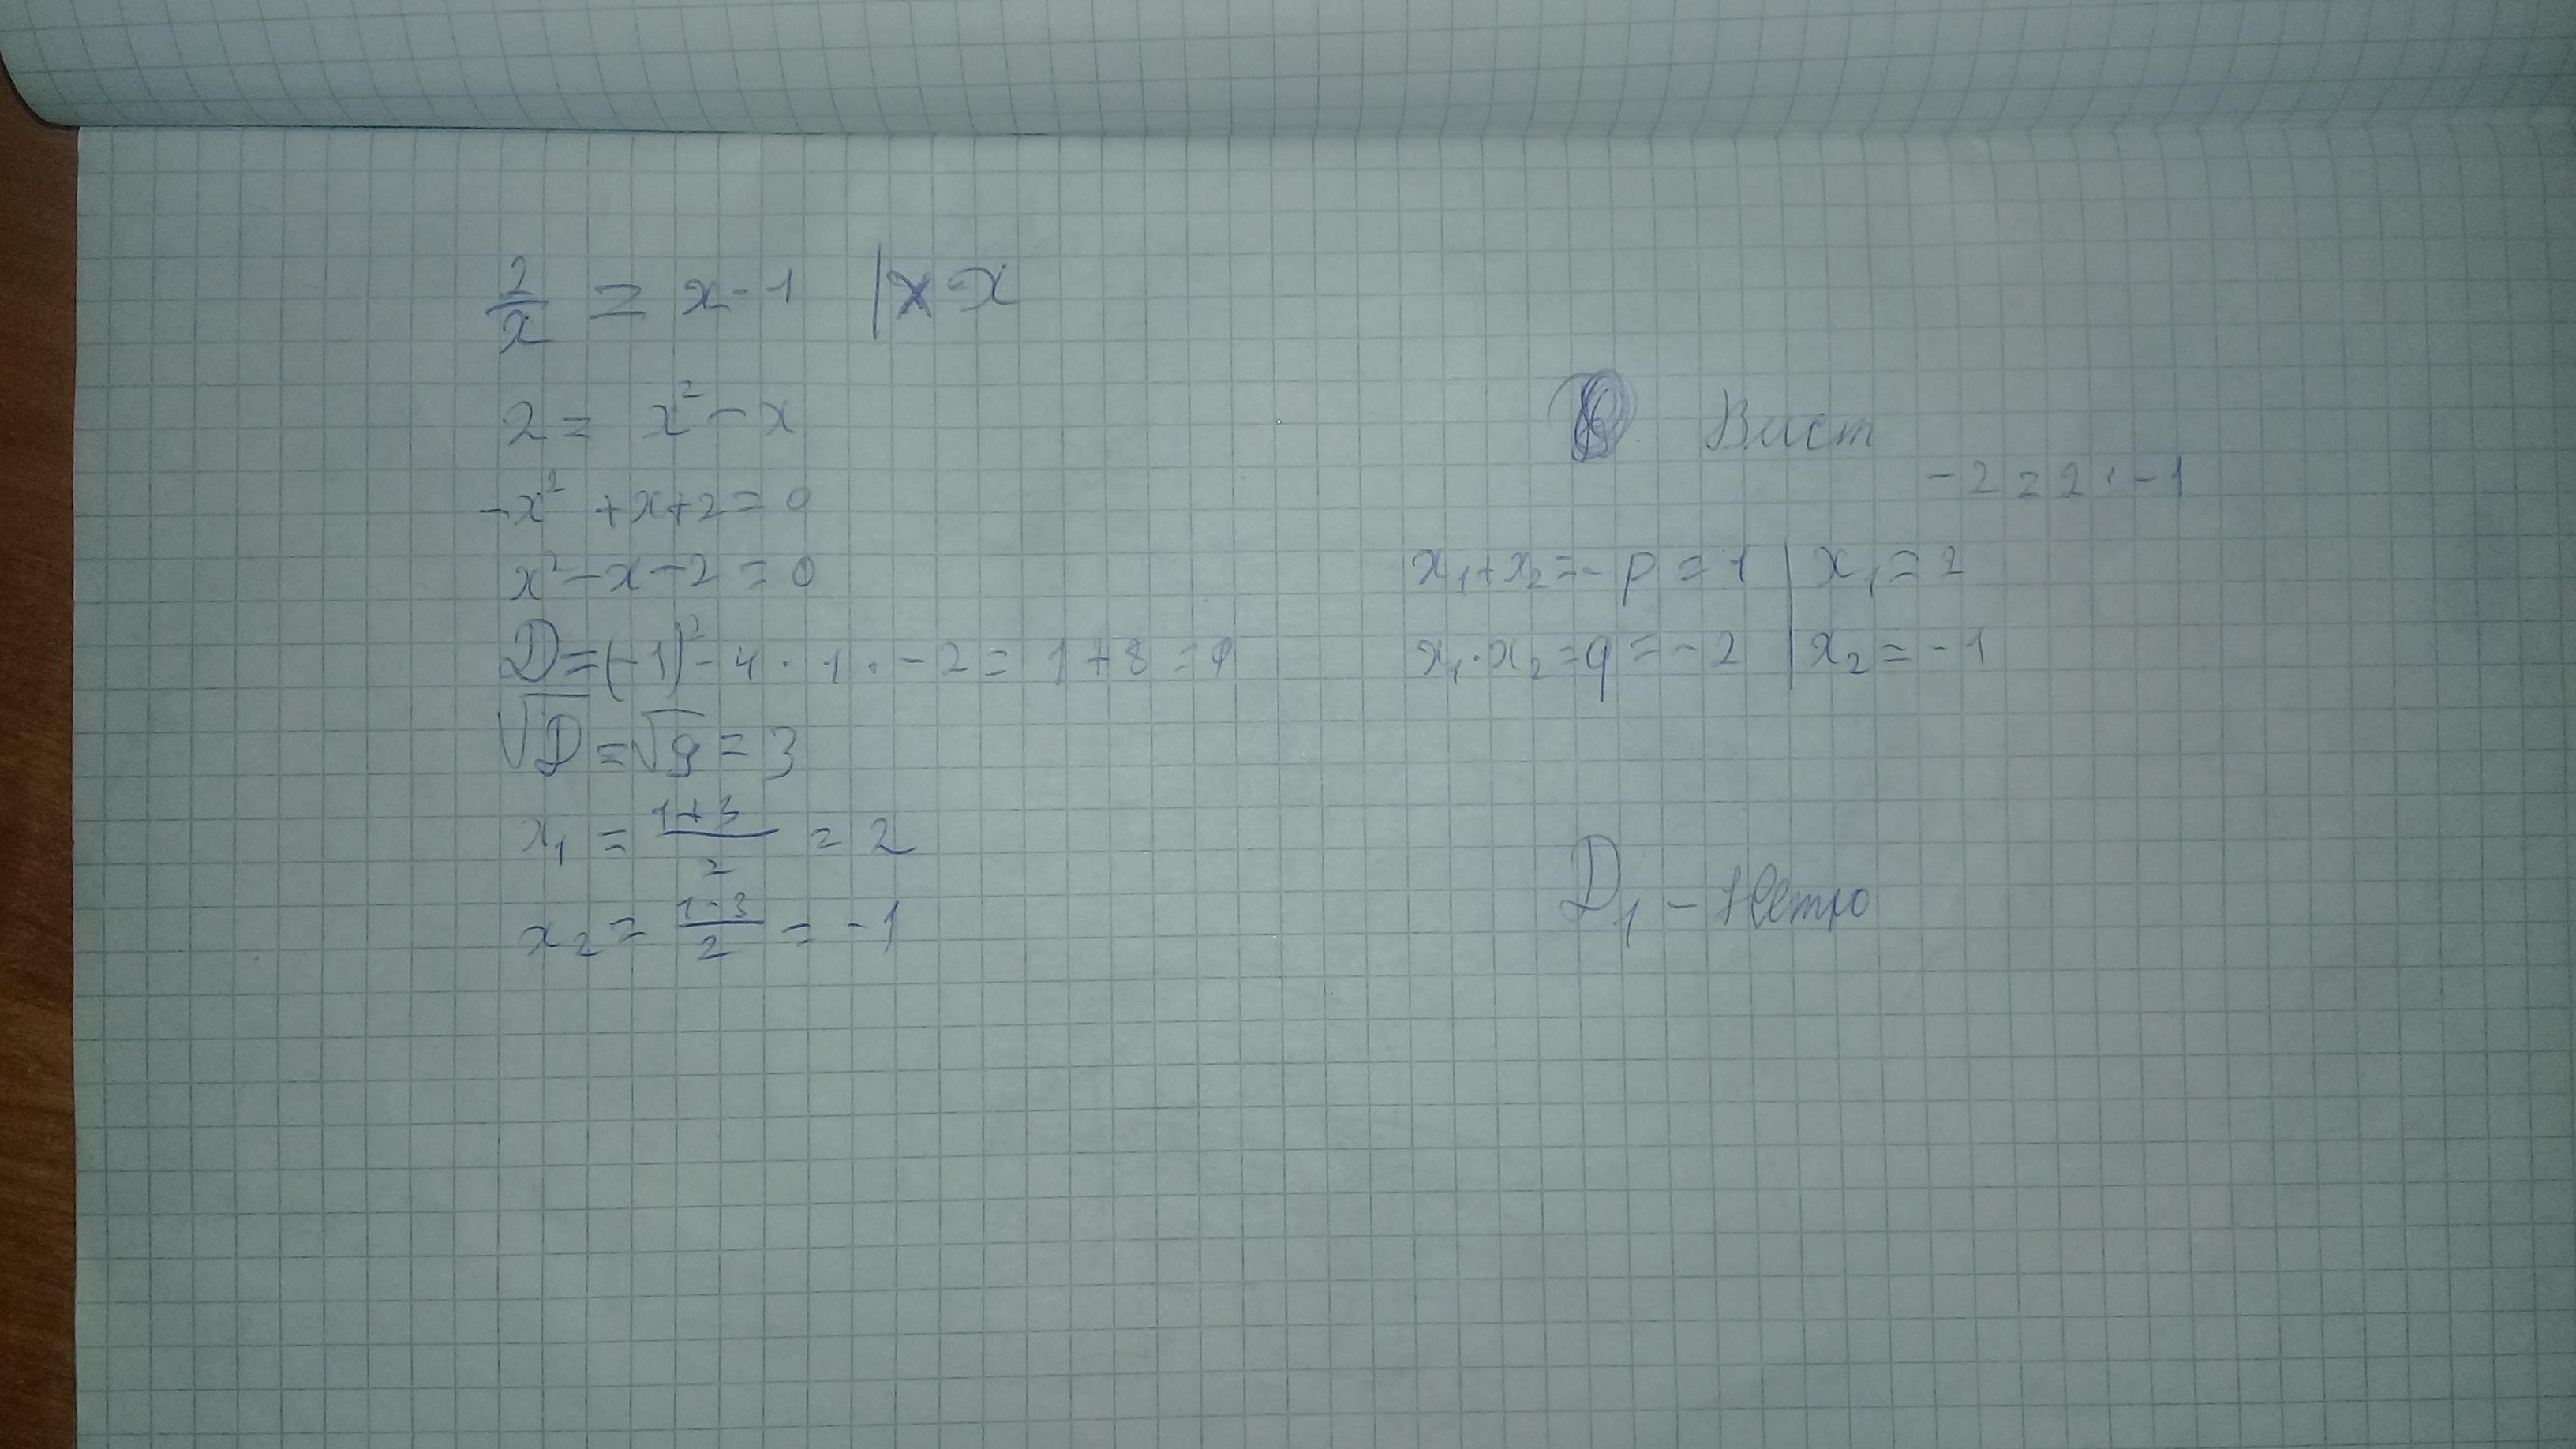 2/x = x-1 | x ·x
2 = x² - x
-x² + x+2 = 0
x² - x - 2 = 0
D = (-1)² - 4 · 1 · -2 = 1 + 8 = 9
√D = √9 = 3
x₁ = (1+3)/2 = 2
x₂ = (1-3)/2 = -1
Виет
-2 = 2 · -1
x₁+x₂ = -p = 1 | x₁ = 2
x₁·x₂ = q = -2 | x₂ = -1
D₁ -